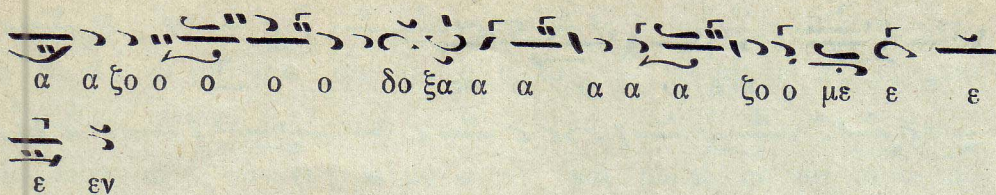 α α ζο ο ο ο ο δο ξα α α α α α ζο ο με ε ε
ε εν